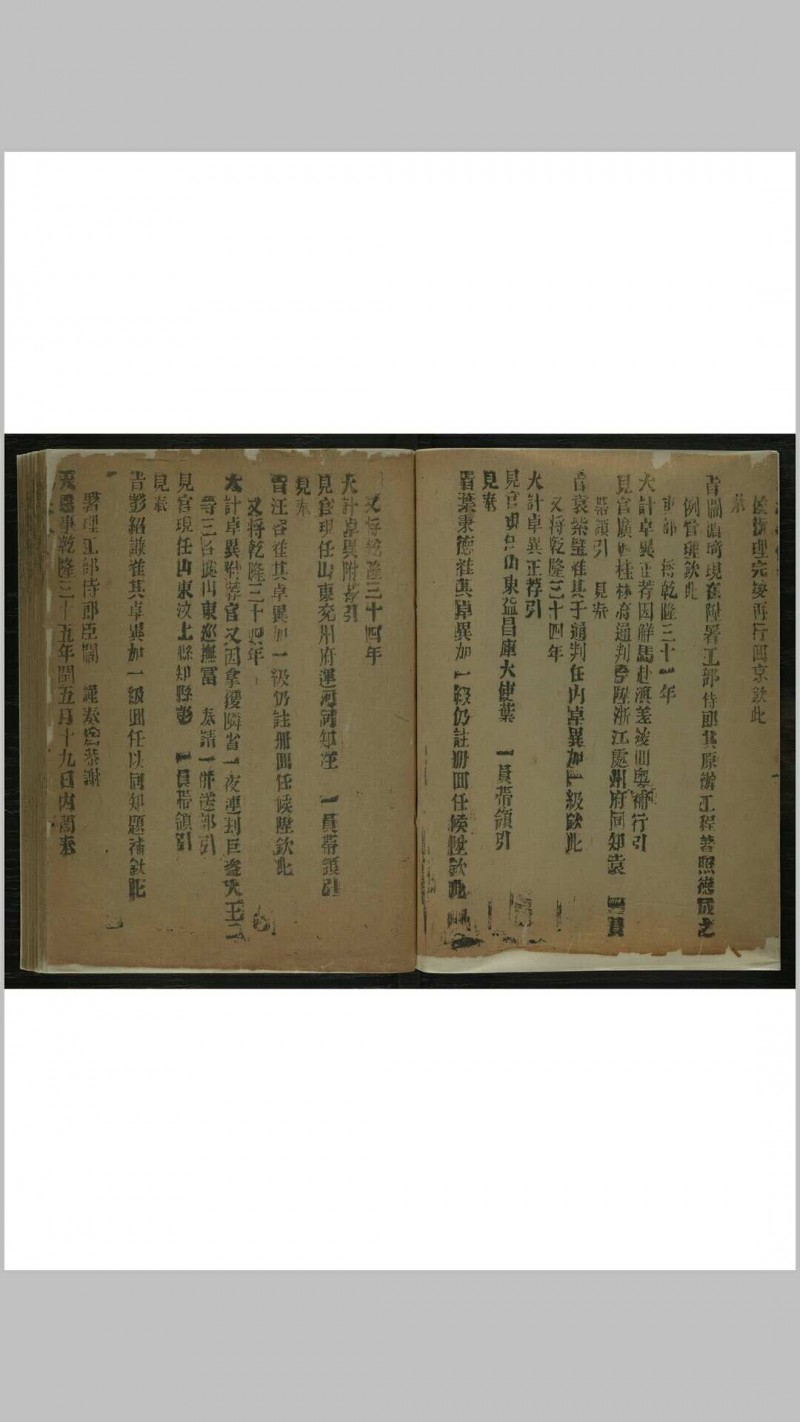 後撫理完竣再行回京欽此
奉
旨關現在陞署工部侍郎其原辦工程著照德成之
例管理欽此
吏部 將乾隆三十一年
大計卓異正荐因解馬赴滇差竣回粵補行引
見官廣西桂林府通判今陞浙江處州府同知袁 一員
帶領引 見奉
旨袁紫蘭准其于通判任內卓異加一級欽此
又將乾隆三十四年
大計卓異正荐引
見官現任山東益昌庫大使葉 一員帶領引
見奉
旨葉秉德准其卓異加一級仍註冊回任候陞欽此
又將乾隆三十四年
大計卓異附荐引
見官現任山東兖州府運河同知汪 一員帶領引
見奉
旨汪容准其卓異加一級仍註冊回任候陞欽此
又將乾隆三十四年
大計卓異附荐官又因拿獲隣省一夜連刦巨盗犬王二
等三名據山東廵撫富 奏請一併送部引
見官現任山東汶上縣知縣彭 一員帶領引
見奉
旨彭紹謙准其卓異加一級回任以同知題補欽此
署理工部侍郎臣關 謹奏為恭謝
天恩事乾隆三十五年閏五月十九日內閣奉